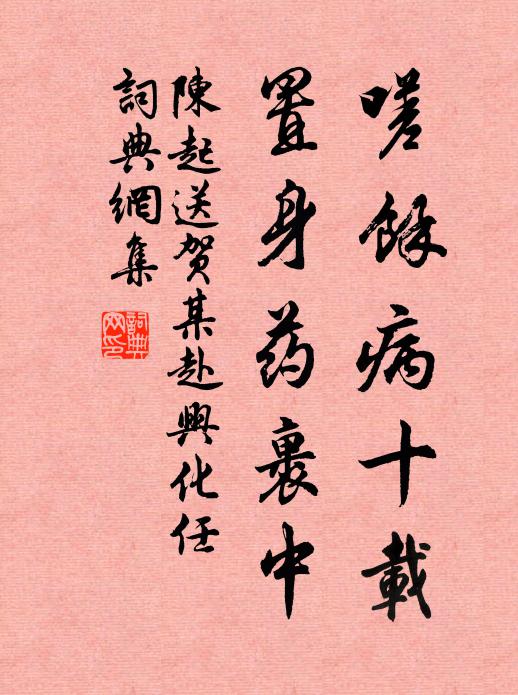 嗟餘病十載
置身药裹中
陳起送賀某赴興化任
詞典網集
詞典
网印